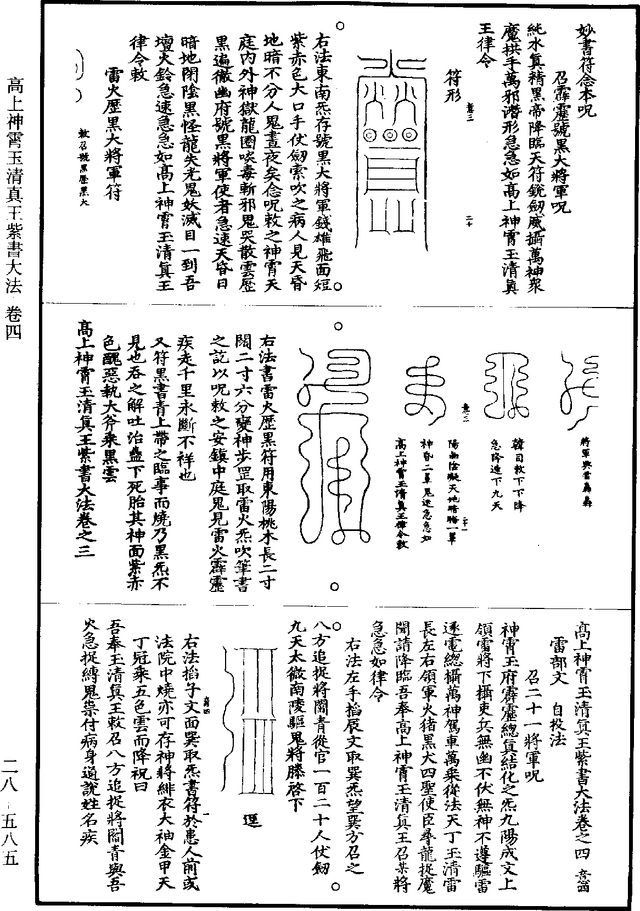 妙書符念本呪
召霹靂號黑大將軍呪
純水真精黑帝降臨天符銃劒威攝萬神眾
魔拱手萬邪潛形急急如高上神霄玉清真
王律令
符形
意三
二十
右法東南炁存號黑大將軍錢雄飛面短
紫赤色大口手仗劒索吹之病人見天昏
地暗不分人鬼晝夜矣念呪敕之神霄天
庭內外神獄龍圈咳毒斬邪鬼哭散雲歷
黑遍徹幽府號黑將軍使者急速天昏日
暗地閉陰黑怪龍失光鬼妖滅目一到吾
壇火鈴急速急急如高上神霄玉清真王
律令敕
雷火歷黑大將軍符
敕召號黑歷黑火
將軍典者轟轟
韓目敕下下降
急降逩下九天
意三
二十一
陽幽陰凝天地暗暗一單
神昏二單鬼逆急急如
高上神霄玉清真王律令敕
右法書雷火歷黑符用東陽桃木長二寸
闊二寸六分變神步罡取雷火炁吹筆書
之訖以呪敕之安鎮中庭鬼見雷火霹靂
疾走千里永斷不祥也
又符黑書青上帶之臨事而燒乃黑炁不
見也吞之解吐治蠱下死胎其神面紫赤
色醜惡執大斧乘黑雲
高上神霄玉清真王紫書大法卷之三
高上神霄玉清真王紫書大法卷之四 意四
雷部文 自投法
召二十一將軍呪
神霄玉府霹靂總真結化之炁九陽成文上
領雷將下攝吏兵無幽不伏無神不遵驅雷
逐電總攝萬神駕車萬乘從法天丁玉清雷
長左右領軍火猪黑犬四聖使臣乘龍捉魔
聞請降臨吾奉高上神霄玉清真王召某將
急急如律令
右法左手掐辰文取巽炁望巽方召之
八方追捉將閻青從官一百二十人仗劒
九天太微南陵驅鬼將滕啓下
逕
意四
一
右法掐子文面巽取炁書符於患人前或
法院中燒亦可存神將緋衣大袖金甲天
丁冠乘五色雲而降祝曰
吾奉玉清真王敕召八方追捉將閻青與吾
火急捉縛鬼祟付病身通說姓名疾
高上神霄玉清真王紫書大法 卷四
二八 - 五八五